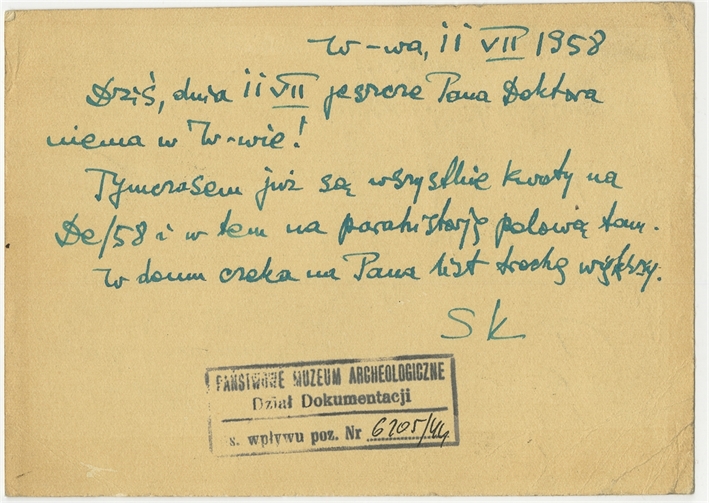 W-wa, 11 VII 1958
Dziś, dnia 11 VII jeszcze Pana Doktora
niema w W-wie!
Tymczasem już są wszystkie kwoty na
De/58 i w tem na parahistorję polową tam.
W domu czeka na Pana list trochę większy.
SK
PAŃSTWOWE MUZEUM ARCHEOLOGICZNE
Dział Dokumentacji
s. wpływu poz. Nr 6205/44